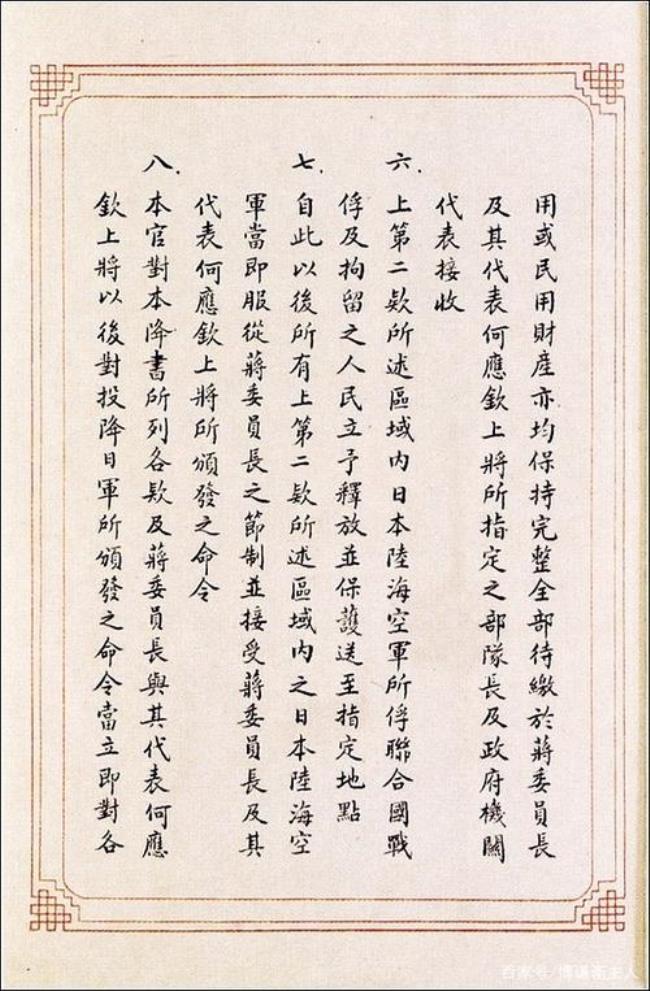 用或民用財產亦均保持完整全部待繳於蔣委員長
及其代表何應欽上將所指定之部隊長及政府機關
代表接收
六.上第二款所述區域內日本陸海空軍所俘聯合國戰
俘及拘留之人民立予釋放並保護送至指定地點
七.自此以後所有上第二款所述區域內之日本陸海空
軍當即服從蔣委員長之節制並接受蔣委員長及其
代表何應欽上將所頒發之命令
八.本官對本降書所列各款及蔣委員長與其代表何應
欽上將以後對投降日軍所頒發之命令當立即對各
百家号/博謙斋主人